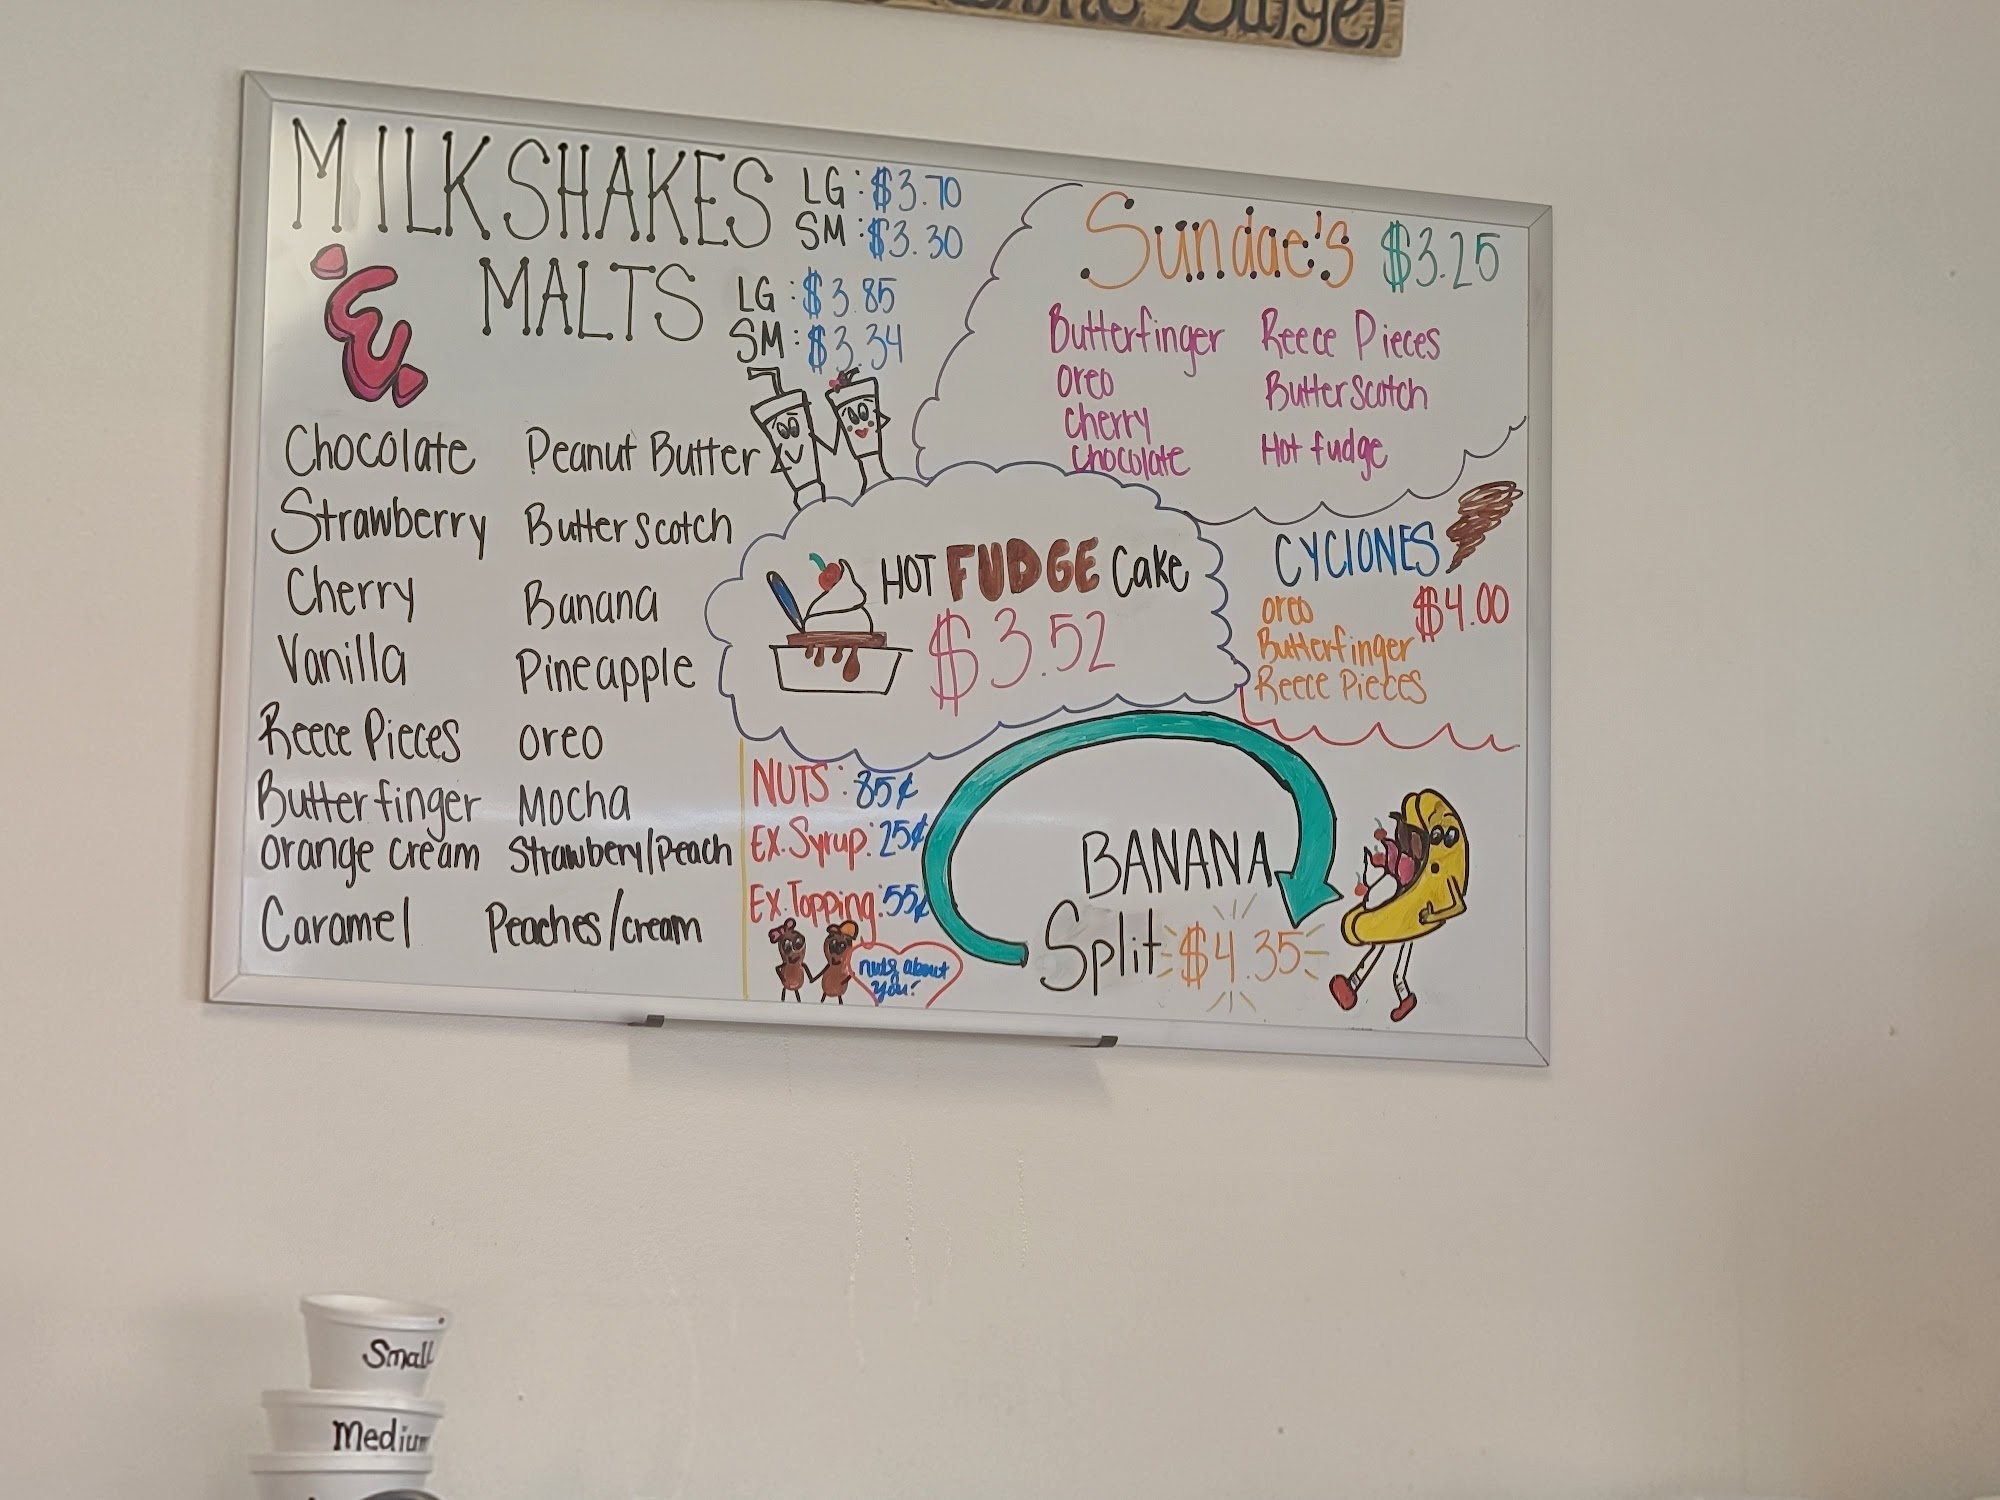 Burger
MILKSHAKES LG: $3.70
SM: $3.30
& MALTS LG: $3.85
SM: $3.34
Chocolate Peanut Butter
Strawberry Butterscotch
Cherry Banana
Vanilla Pineapple
Reece Pieces oreo
Butterfinger Mocha
orange cream Strawbery/peach
Caramel Peaches/cream
Sundae's $3.25
Butterfinger Reece Pieces
oreo Butterscotch
Cherry
Chocolate Hot fudge
HOT FUDGE Cake
$3.52
CYCLONES
oreo $4.00
Butterfinger
Reece Pieces
NUTS: 85¢
EX. Syrup: 25¢
Ex. Topping: 55¢
nuts about
you!
BANANA
Split $4.35
Small
Medium